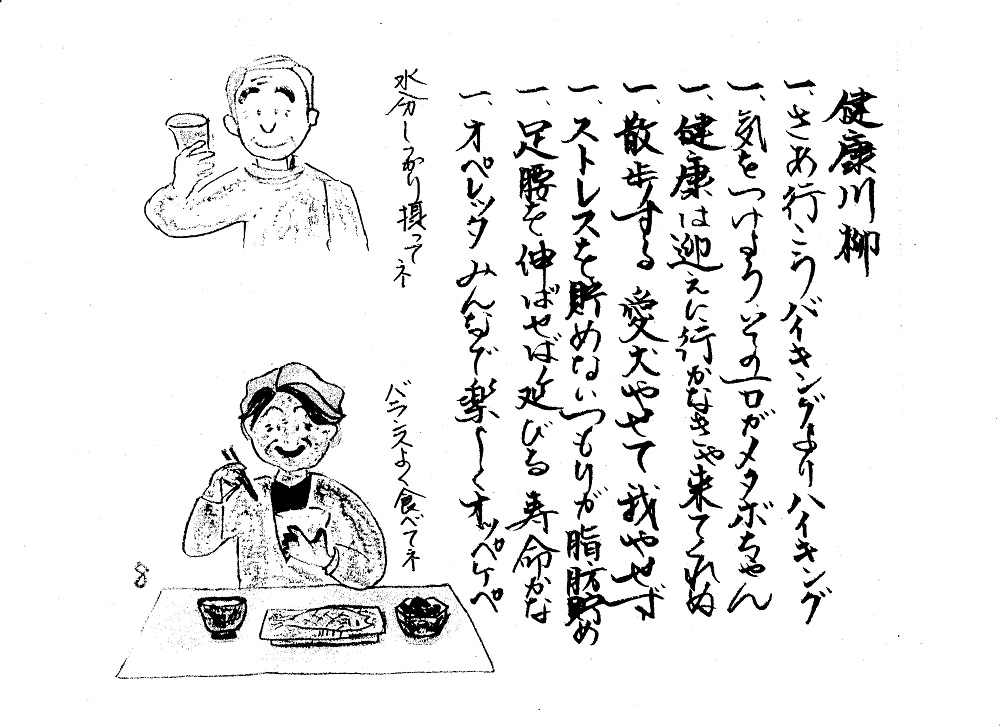 健康川柳
一、さあ行こうバイキングよりハイキング
一、気をつけようその一口がメタボちゃん
一、健康は迎えに行かなきゃ来てくれぬ
一、散歩する愛犬やせて我やせず
一、ストレスを貯めないつもりが脂肪貯め
一、足腰を伸ばせば延びる寿命かな
一、オペレッタみんなで楽しくオッペケペ
水分しっかり摂ってネ
バランスよく食べてネ
8